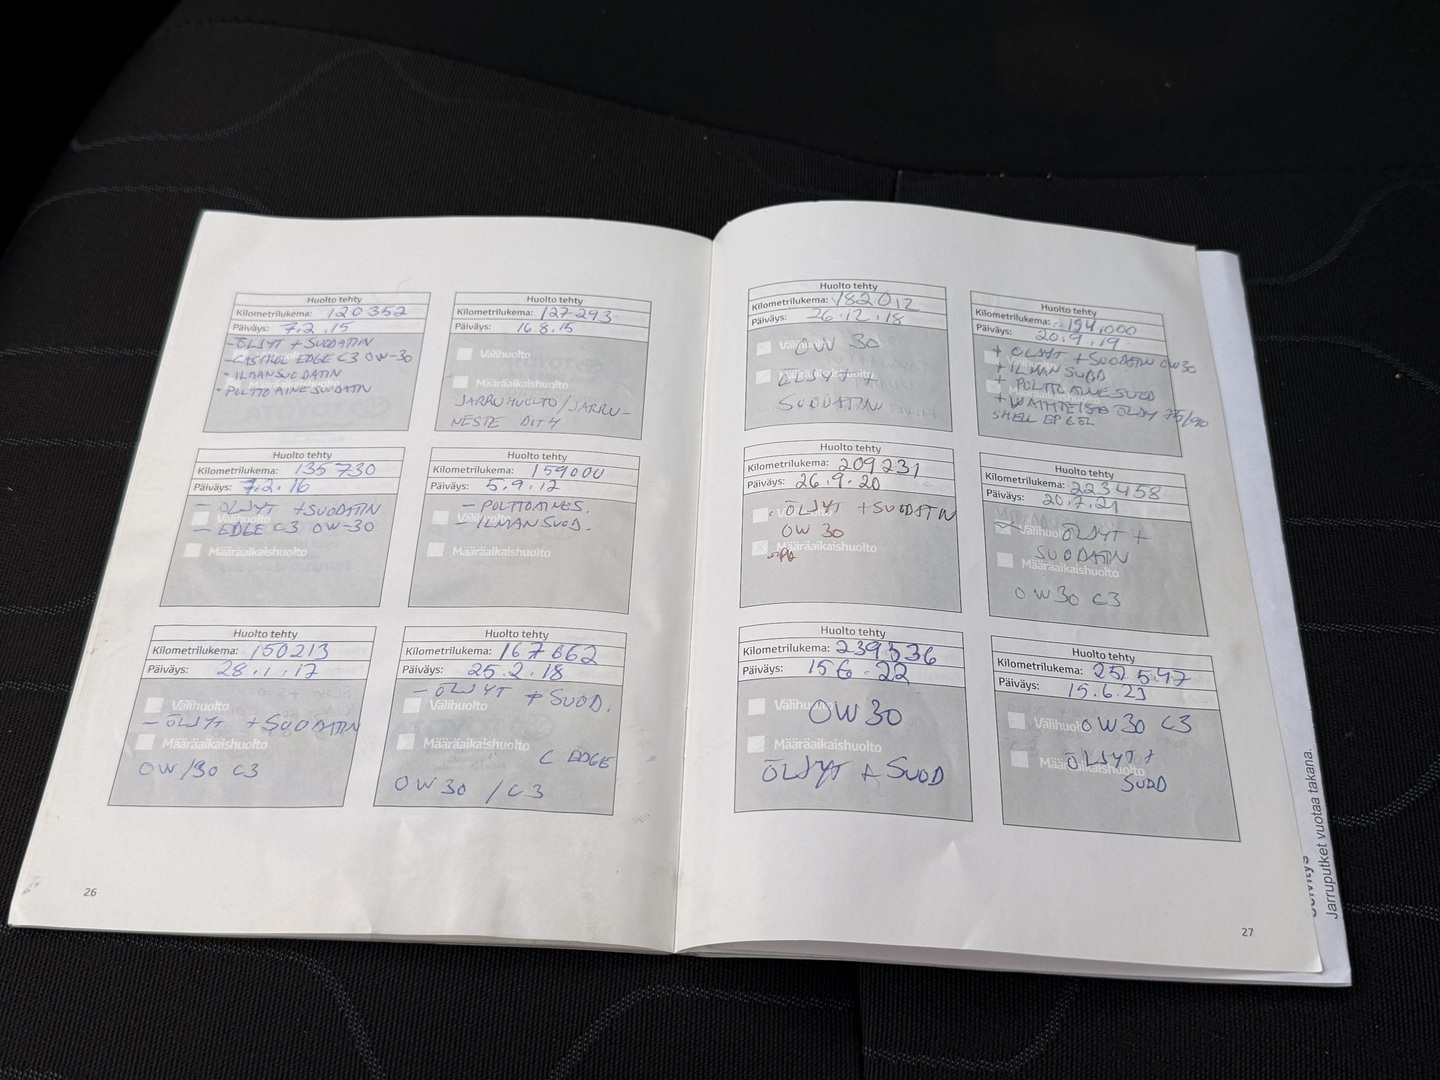 Huolto tehty
Kilometrilukema: 120352
Päiväys: 7.2.15
- ÖLJYT + SUODATIN
- CASTROL EDGE C3 0W-30
- ILMANSUODATIN
- POLTTOAINESUODATIN
Huolto tehty
Kilometrilukema: 127293
Päiväys: 16.8.15
Välihuolto
Määräaikaishuolto
JARRUHUOLTO/JARRU-
NESTE DIT4
Huolto tehty
Kilometrilukema: 135730
Päiväys: 7.2.16
- ÖLJYT + SUODATIN
- EDGE C3 0W-30
Määräaikaishuolto
Huolto tehty
Kilometrilukema: 159000
Päiväys: 5.9.17
- POLTTOAINES.
- ILMANSUOD.
Määräaikaishuolto
Huolto tehty
Kilometrilukema: 150213
Päiväys: 28.1.17
Välihuolto
- ÖLJYT + SUODATIN
Määräaikaishuolto
0W/30 C3
Huolto tehty
Kilometrilukema: 167662
Päiväys: 25.2.18
- ÖLJYT + SUOD.
Välihuolto
Määräaikaishuolto
C EDGE
0W30 / C3
26
Huolto tehty
Kilometrilukema: 182012
Päiväys: 26.12.18
Välihuolto
0W 30
Määräaikaishuolto
ÖLJYT +
SUODATIN
Huolto tehty
Kilometrilukema: 194000
Päiväys: 20.9.19
+ ÖLJYT + SUODATIN 0W30
+ ILMAN SUOD
+ POLTTOAINE SUOD
+ VAIHTEISTO ÖLJY 75/90
SHELL EP
Huolto tehty
Kilometrilukema: 209231
Päiväys: 26.9.20
ÖLJYT + SUODATIN
0W 30
Määräaikaishuolto
Huolto tehty
Kilometrilukema: 223458
Päiväys: 20.7.21
Välihuolto
ÖLJYT +
SUODATIN
Määräaikaishuolto
0W30 C3
Huolto tehty
Kilometrilukema: 239536
Päiväys: 15 6.22
Välihuolto
0W30
Määräaikaishuolto
ÖLJYT + SUOD
Huolto tehty
Kilometrilukema: 252547
Päiväys: 15.6.23
Välihuolto
0W30 C3
Määräaikaishuolto
ÖLJYT +
SUOD
27
Selvitys
Jarruputket vuotaa takana.